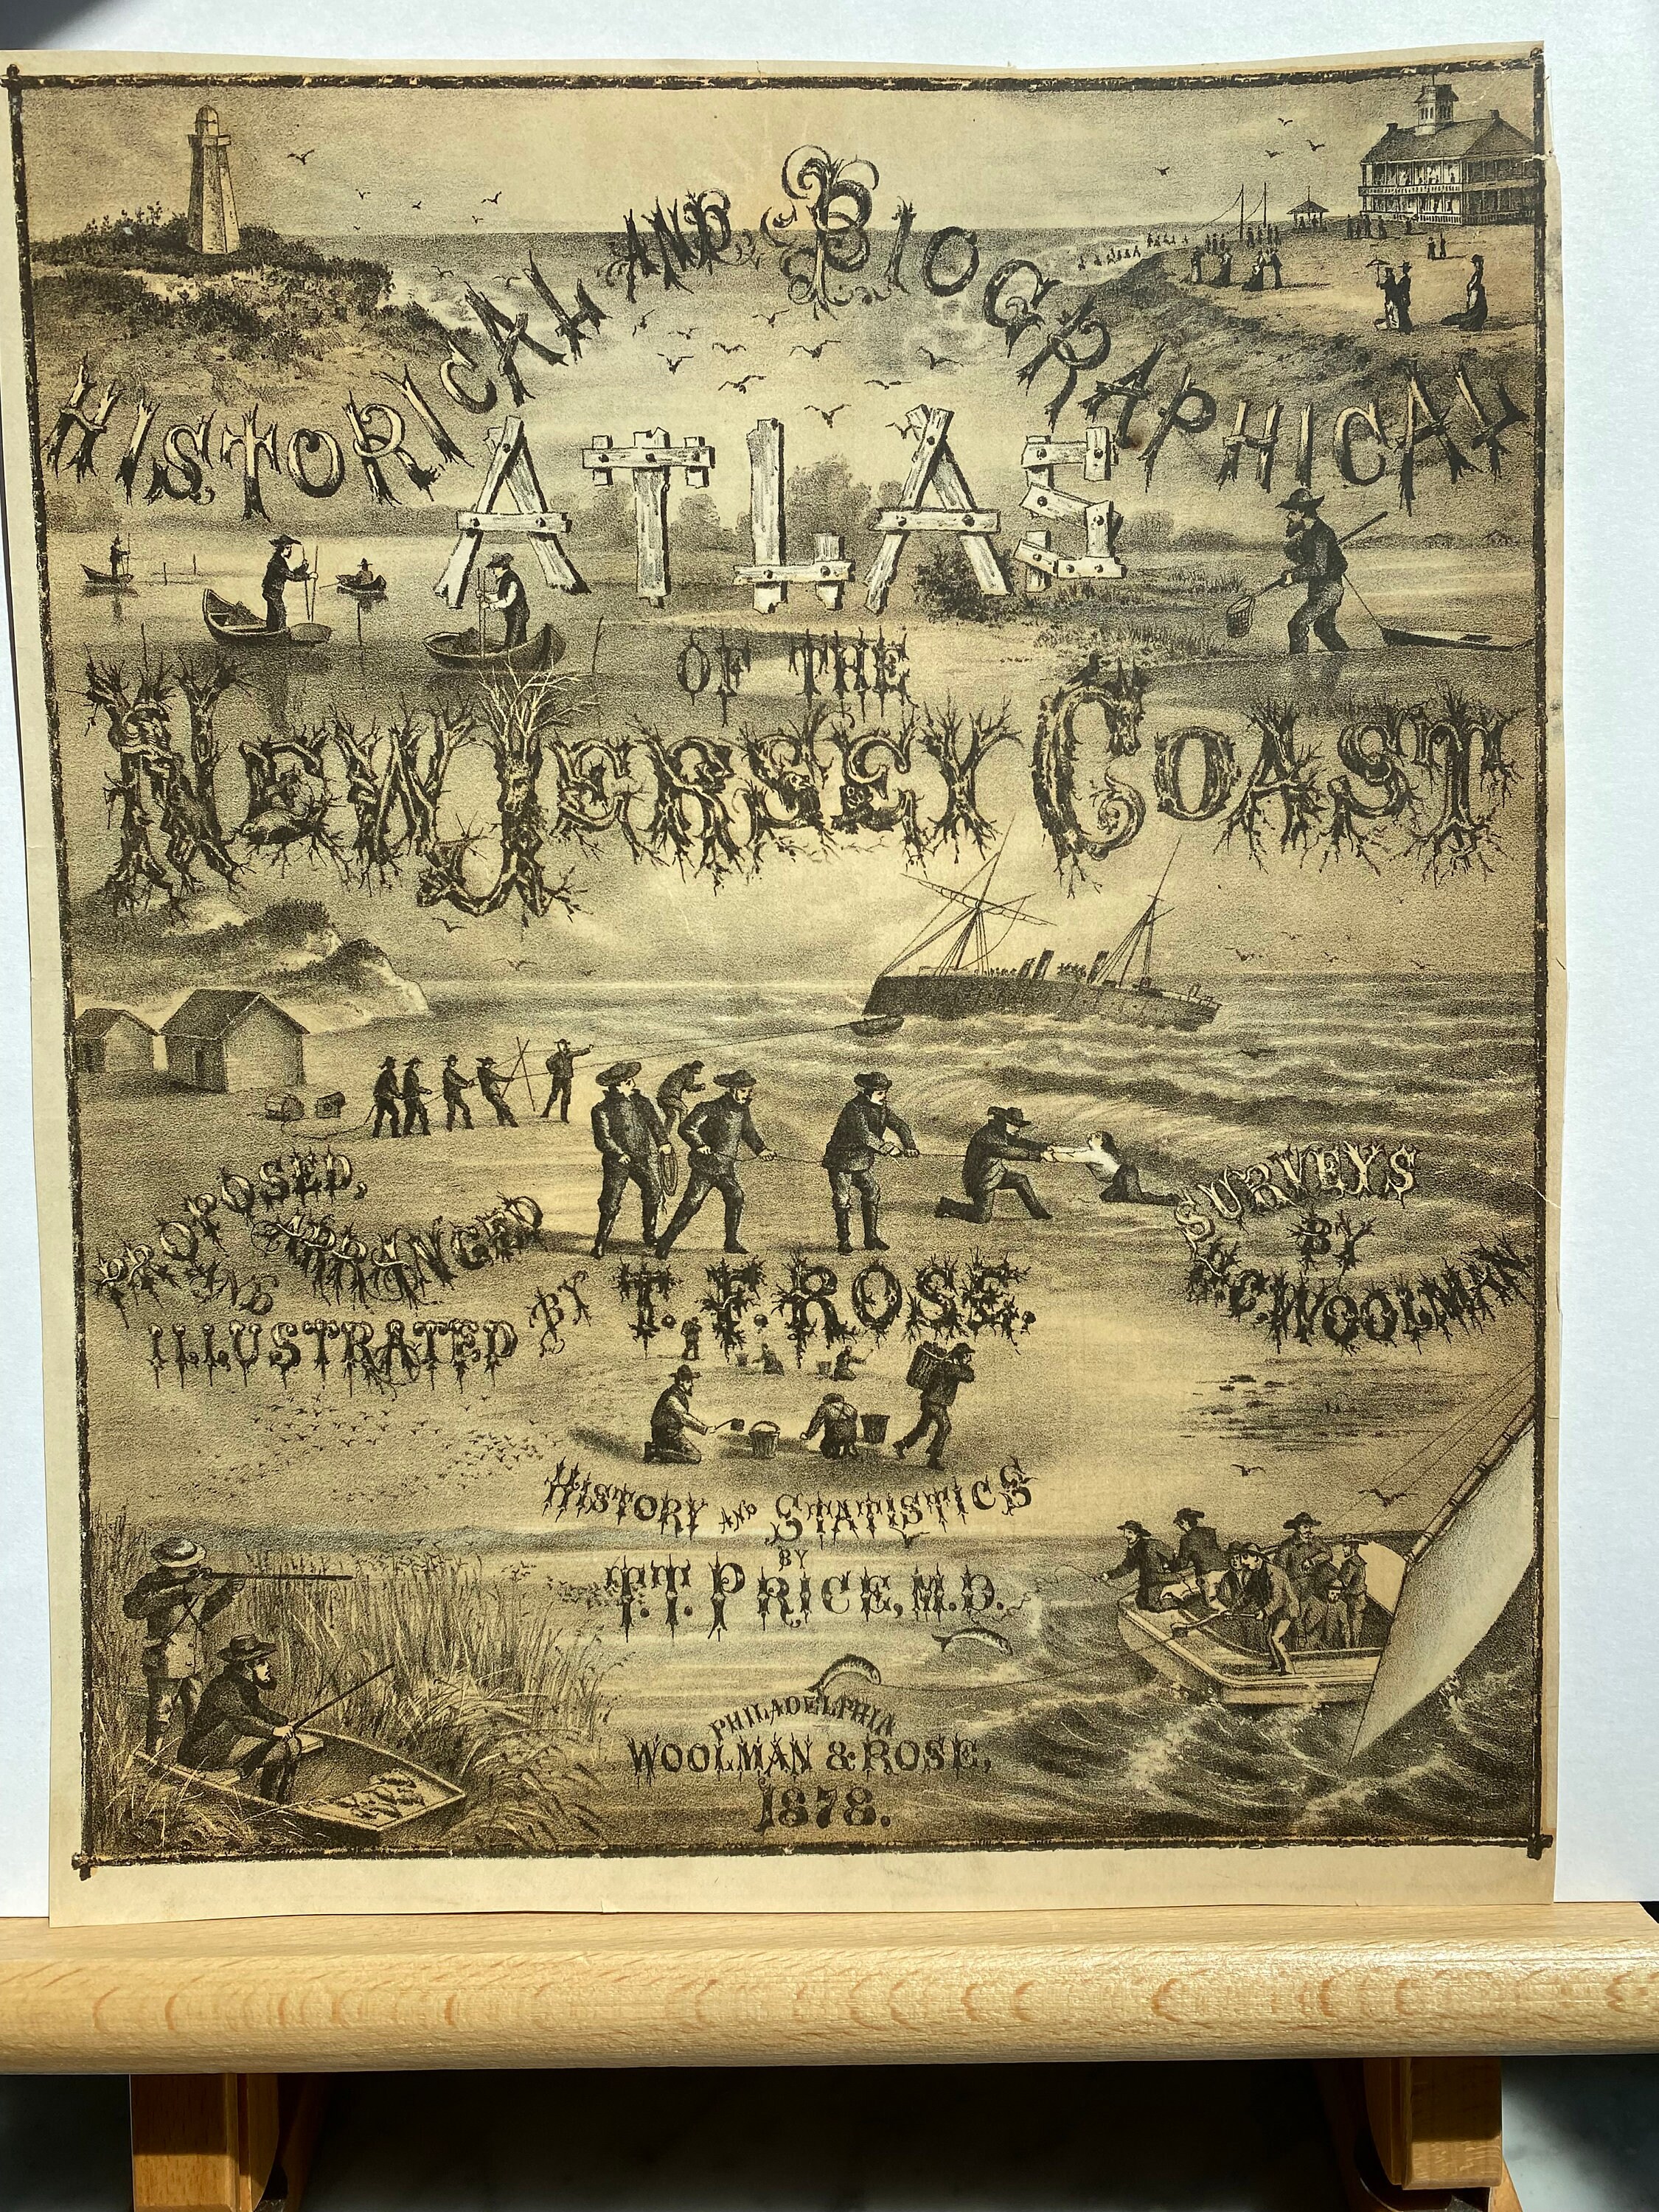 HISTORICAL AND BIOGRAPHICAL
ATLAS
OF THE
NEW JERSEY COAST
PROPOSED,
ARRANGED
AND
ILLUSTRATED BY T. F. ROSE.
SURVEYS
BY
H. C. WOOLMAN
HISTORY AND STATISTICS
BY
T. T. PRICE, M.D.
PHILADELPHIA
WOOLMAN & ROSE,
1878.